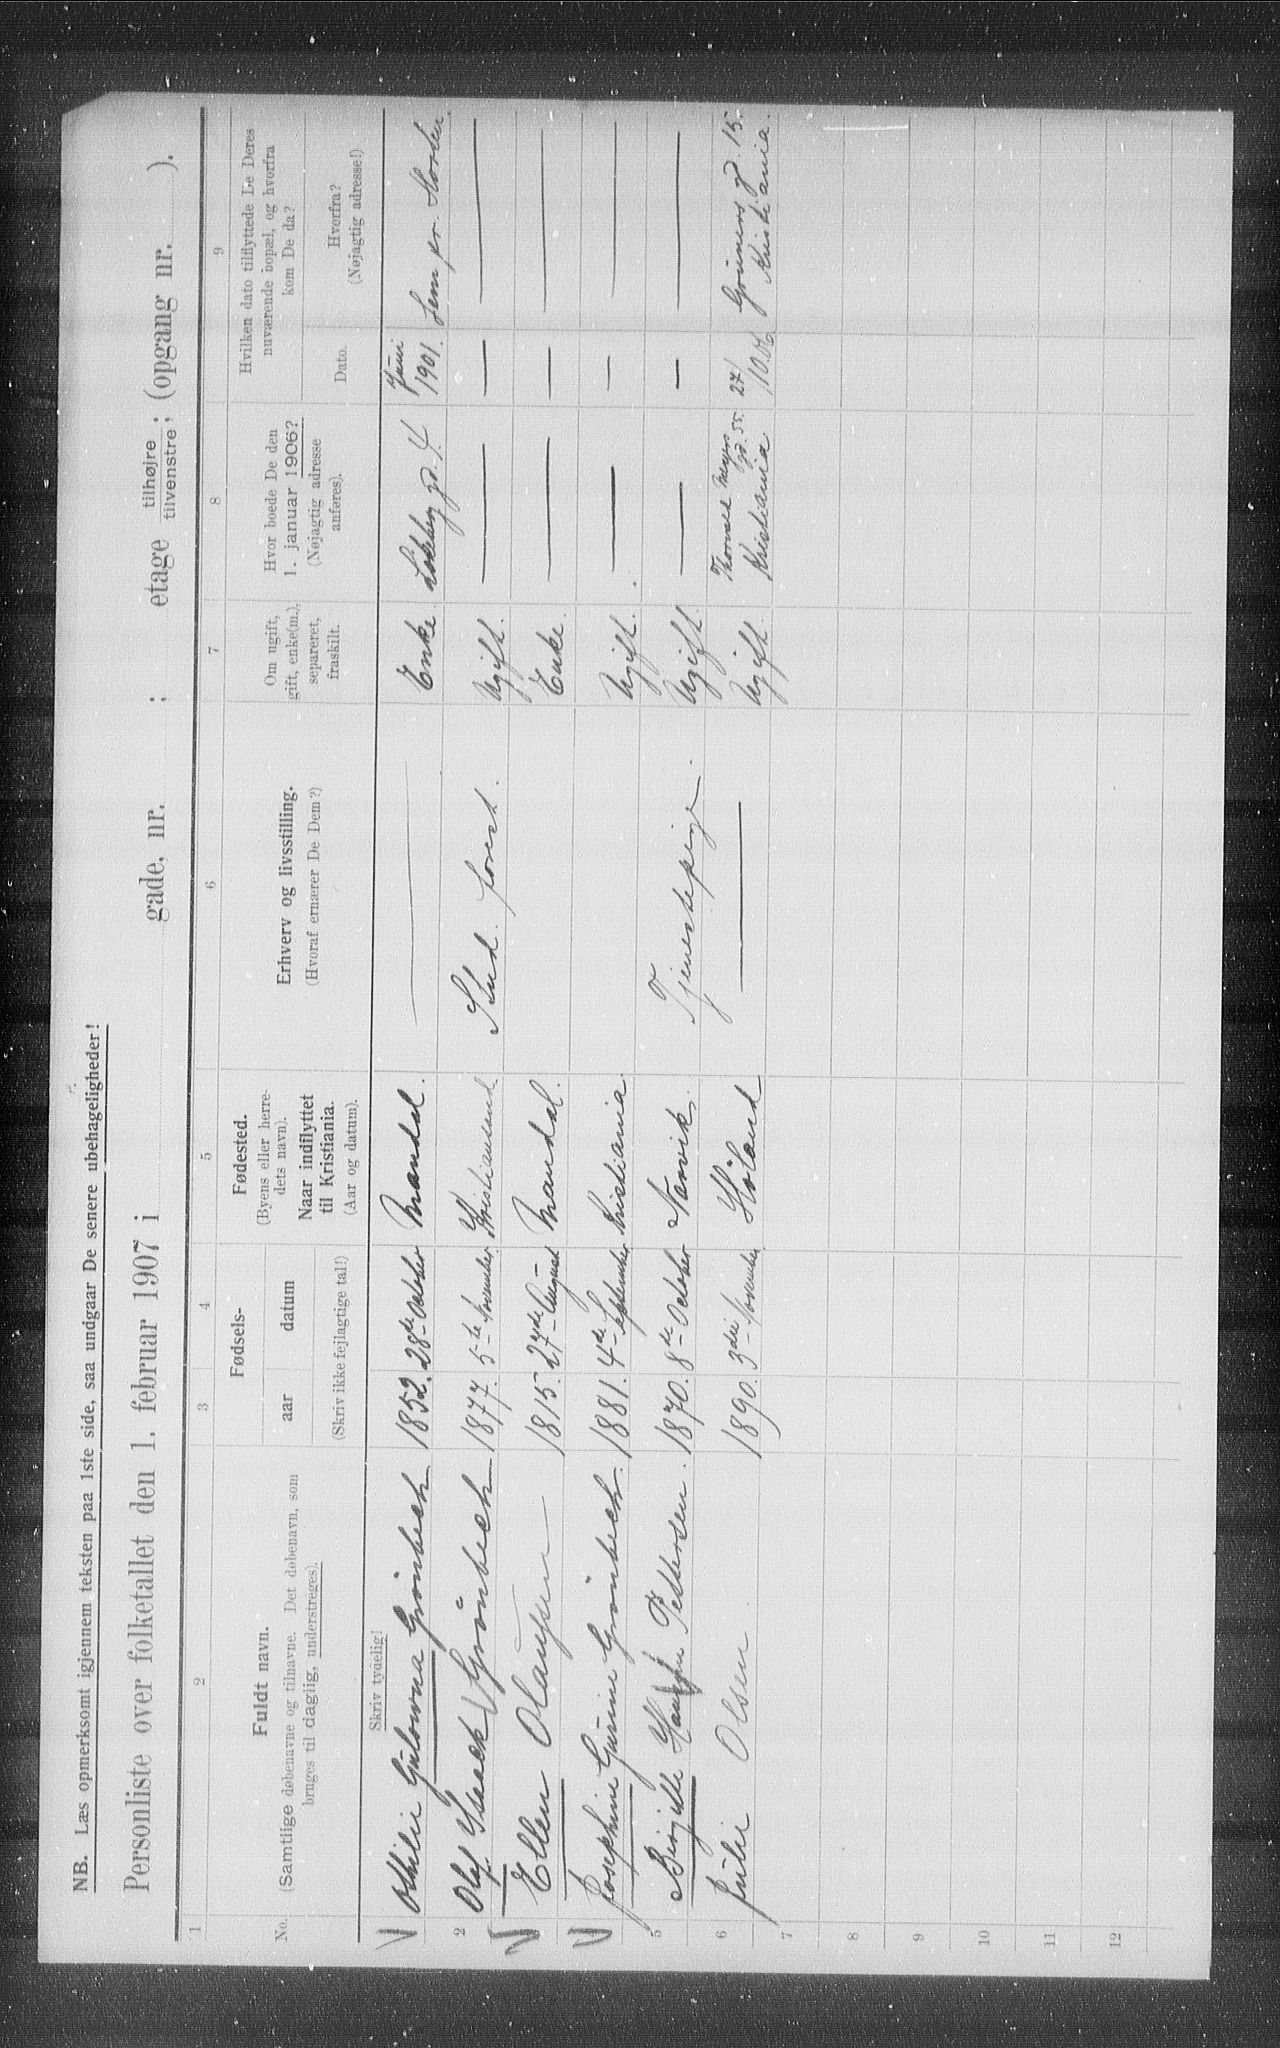 NB. Læs opmerksomt igjennem teksten paa 1ste side, saa undgaar De senere ubehageligheder!
Personliste over folketallet den 1. februar 1907 i gade, nr. ; etage tilhøjre tilvenstre; (opgang nr. ).
1 2 3 4 5 6 7 8 9
No.
Fuldt navn.
(Samtlige døbenavne og tilnavne. Det døbenavn, som
bruges til daglig, understreges).
Fødsels-
aar datum
(Skriv ikke fejlagtige tal!)
Fødested.
(Byens eller herre-
dets navn).
Naar indflyttet
til Kristiania.
(Aar og datum).
Erhverv og livsstilling.
(Hvoraf ernærer De Dem?)
Om ugift,
gift, enke(m.),
separeret,
fraskilt.
Hvor boede De den
1. januar 1906?
(Nøjagtig adresse
anføres).
Hvilken dato tilflyttede De Deres
nuværende bopæl, og hvorfra
kom De da?
Dato.
Hvorfra?
(Nøjagtig adresse!)
Skriv tydelig!
Othilie Gulowna Grönbech 1852. 28de October Mandal. — Enke. gd. 4 Juni 1901. Sem pr. Horten.
2 Olaf Isaach Grönbech 1877. 5te November Kristiansund Stud. Ugift. — — —
Ellen Olausen 1815. 27de August Mandal. Enke. — — —
Josephine Gurine Grönbech. 1881. 4de September Kristiania. Ugift. — — —
5 Birgitte Pettersen. 1870. 8de October Narvik. Tjenestepige. Ugift. — — —
6 Julie Olsen 1890. 3die November Höland — Ugift. Thorvald Meyers gd. 55. Kristiania. 27/10.06 Grüners gd. 15. Kristiania.
7
8
9
10
11
12